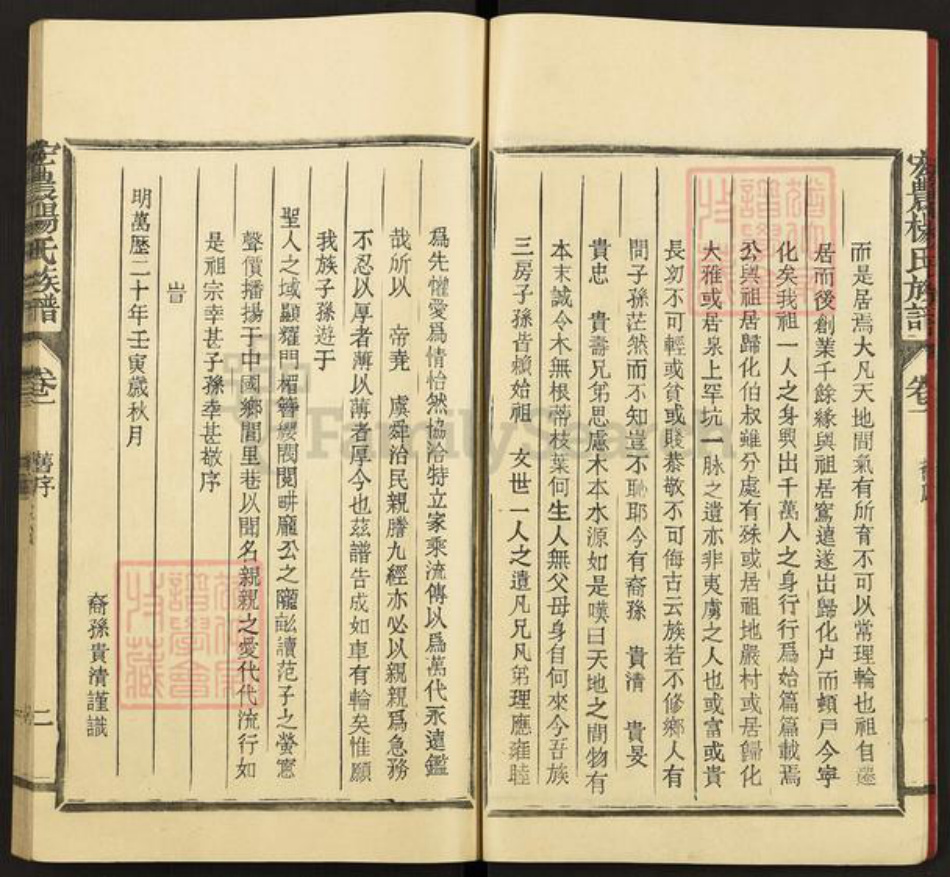 宏農楊氏族譜 卷一
而是居焉大凡天地間氣有所育不可以常理輪也祖自遷
居而後創業千餘緣與祖居窵遠遂出歸化户而頓戸今寧
化矣我祖一人之身興出千萬人之身行行爲始篇篇載焉
公與祖居歸化伯叔雖分處有殊或居祖地嚴村或居歸化
大雅或居泉上罕坑一脉之遺亦非夷虜之人也或富或貴
長切不可輕或貧或賤恭敬不可侮古云族若不修鄉人有
問子孫茫然而不知豈不耻耶今有裔孫 貴清 貴旻
貴忠 貴壽兄弟思慮木本水源如是嘆曰天地之間物有
本末誠令木無根蒂枝葉何生人無父母身自何來今吾族
三房子孫皆賴始祖 文世一人之遺凡兄凡弟理應雍睦
爲先懽愛爲情怡然協洽特立家乘流傳以爲萬代永遠鑑
哉所以 帝堯 虞舜治民親謄九經亦必以親親爲急務
不忍以厚者薄以薄者厚今也茲譜告成如車有輪矣惟願
我族子孫遊于
聖人之域顯耀門楣簪纓閥閱畊龐公之隴畝讀范子之螢窻
聲價播揚于中國鄉閭里巷以聞名親親之愛代代流行如
是祖宗幸甚子孫幸甚敬序
旹
明萬歷二十年壬寅歲秋月
裔孫貴清謹識
宏農楊氏族譜 卷一 舊序 二
FamilySearch